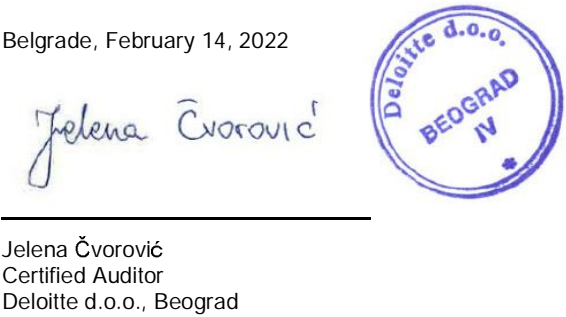 Belgrade, February 14, 2022
Deloitte d.o.o.
BEOGRAD
IV
*
Jelena Čvorović
Jelena Čvorović
Certified Auditor
Deloitte d.o.o., Beograd